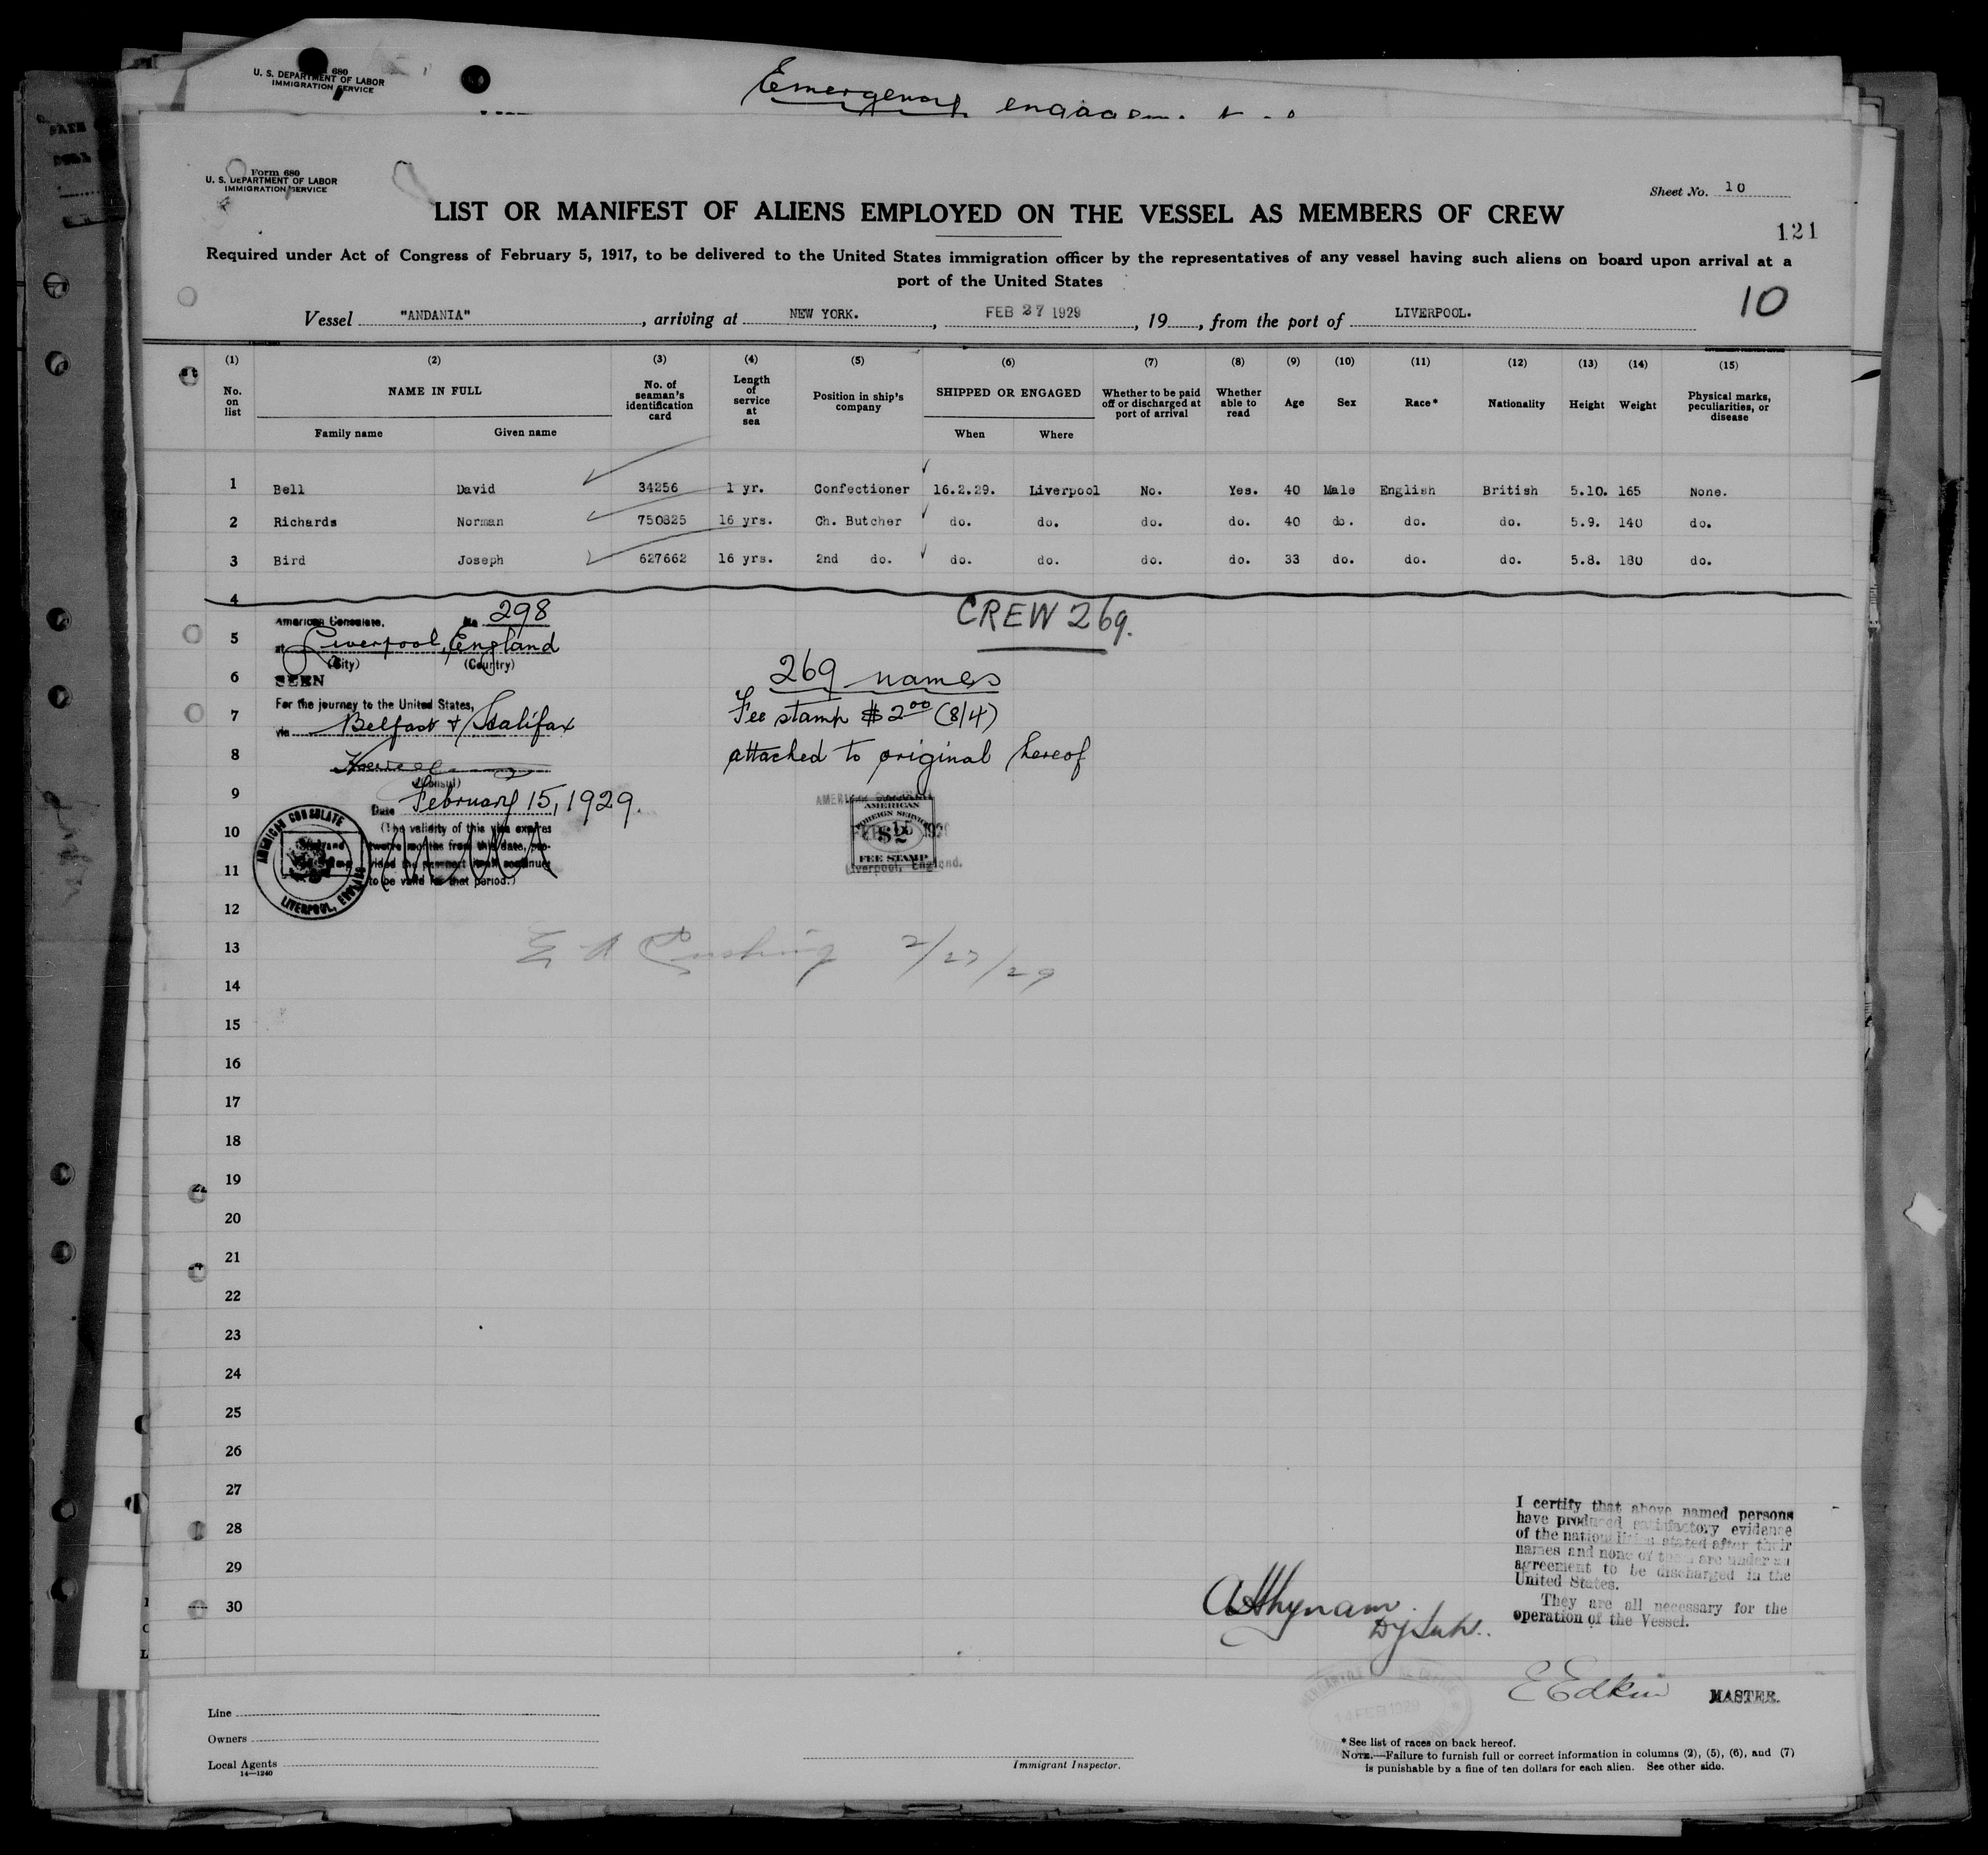 680
U. S. DEPARTMENT OF LABOR
IMMIGRATION SERVICE
Emergency
Form 680
U. S. DEPARTMENT OF LABOR
IMMIGRATION SERVICE
Sheet No. 10
LIST OR MANIFEST OF ALIENS EMPLOYED ON THE VESSEL AS MEMBERS OF CREW
121
Required under Act of Congress of February 5, 1917, to be delivered to the United States immigration officer by the representatives of any vessel having such aliens on board upon arrival at a
port of the United States
10
Vessel "ANDANIA", arriving at NEW YORK., FEB 27 1929, 19, from the port of LIVERPOOL.
(1) (2) (3) (4) (5) (6) (7) (8) (9) (10) (11) (12) (13) (14) (15)
No. on list NAME IN FULL No. of seaman's identification card Length of service at sea Position in ship's company SHIPPED OR ENGAGED Whether to be paid off or discharged at port of arrival Whether able to read Age Sex Race* Nationality Height Weight Physical marks, peculiarities, or disease
Family name Given name When Where
1 Bell David 34256 1 yr. Confectioner 16.2.29. Liverpool No. Yes. 40 Male English British 5.10. 165 None.
2 Richards Norman 750825 16 yrs. Ch. Butcher do. do. do. do. 40 do. do. do. 5.9. 140 do.
3 Bird Joseph 627662 16 yrs. 2nd do. do. do. do. do. 33 do. do. do. 5.8. 180 do.
4
American Consulate, No 298
CREW 269.
5
at Liverpool, England
(City) (Country)
6
SEEN
269 names
For the journey to the United States,
7
via Belfast & Halifax
Fee stamp $2.00 (8/4)
8
attached to original hereof
(Consul)
9
Date February 15, 1929.
AMERICAN
FOREIGN SERVICE
$2
FEE STAMP
Liverpool, England.
10
(The validity of this visa expires
twelve months from this date, pro-
11
vided the passport itself continues
to be valid for that period.)
AMERICAN CONSULATE
LIVERPOOL, ENGLAND
12
13
2/27/29
14
15
16
17
18
19
20
21
22
23
24
25
26
27
28
29
30
I certify that above named persons
have produced satisfactory evidence
of the nationalities stated after their
names and none of them are under an
agreement to be discharged in the
United States.
They are all necessary for the
operation of the Vessel.
MASTER.
14 FEB 1929
Line
Owners
Local Agents
14—1240
Immigrant Inspector.
* See list of races on back hereof.
NOTE.—Failure to furnish full or correct information in columns (2), (5), (6), and (7)
is punishable by a fine of ten dollars for each alien. See other side.